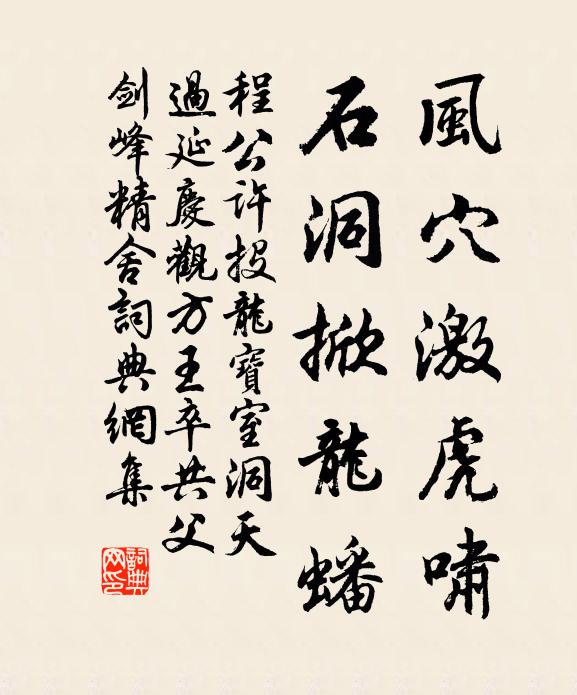 風穴激虎嘯
石洞掀龍蟠
程公許投龍寶室洞天
過延慶觀方王卒共父
劍峰精舍詞典網集
詞典網印